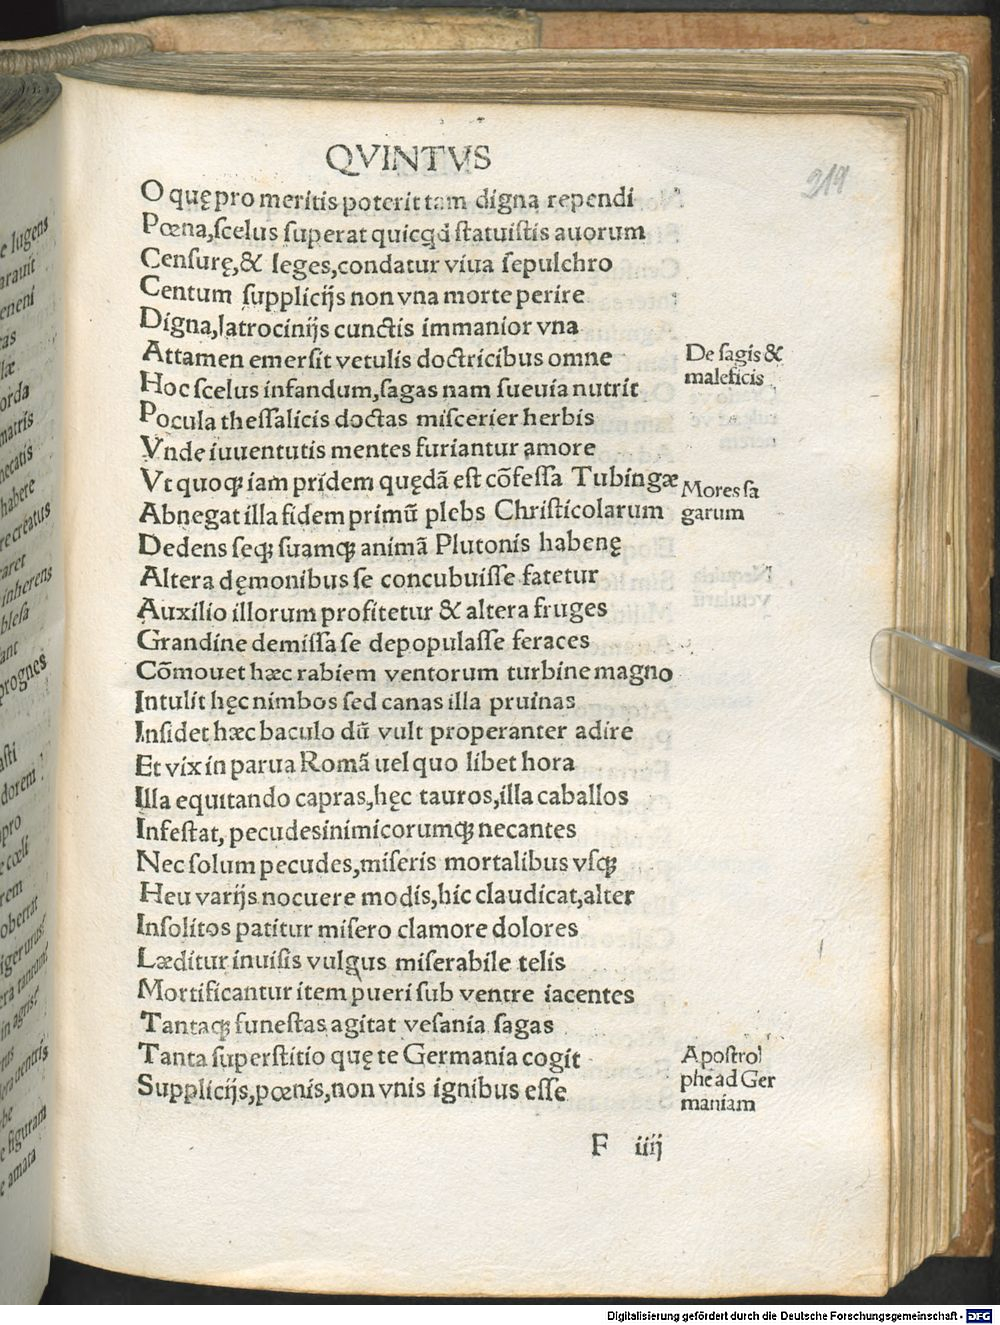 QVINTVS
219
O quę pro meritis poterit tam digna rependi
Pœna, scelus superat quicqd statuistis auorum
Censurę, & leges, condatur viua sepulchro
Centum supplicijs non vna morte perire
Digna, latrocinijs cunctis immanior vna
Attamen emersit vetulis doctricibus omne
De sagis &
maleficis
Hoc scelus infandum, sagas nam sueuia nutrit
Pocula thessalicis doctas miscerier herbis
Vnde iuuentutis mentes furiantur amore
Vt quoqꝫ iam pridem quędā est cōfessa Tubingæ
Mores sa
garum
Abnegat illa fidem primū plebs Christicolarum
Dedens seqꝫ suamqꝫ animā Plutonis habenę
Altera dęmonibus se concubuisse fatetur
Auxilio illorum profitetur & altera fruges
Grandine demissa se depopulasse feraces
Cōmouet hæc rabiem ventorum turbine magno
Intulit hęc nimbos sed canas illa pruinas
Insidet hæc baculo dū vult properanter adire
Et vix in parua Romā uel quo libet hora
Illa equitando capras, hęc tauros, illa caballos
Infestat, pecudes inimicorumqꝫ necantes
Nec solum pecudes, miseris mortalibus vsqꝫ
Heu varijs nocuere modis, hic claudicat, alter
Insolitos patitur misero clamore dolores
Læditur inuisis vulgus miserabile telis
Mortificantur item pueri sub ventre iacentes
Tantaqꝫ funestas agitat vesania sagas
Tanta superstitio quę te Germania cogit
Apostrol
phe ad Ger
maniam
Supplicijs, pœnis, non vnis ignibus esse
F iiij
Digitalisierung gefördert durch die Deutsche Forschungsgemeinschaft - DFG